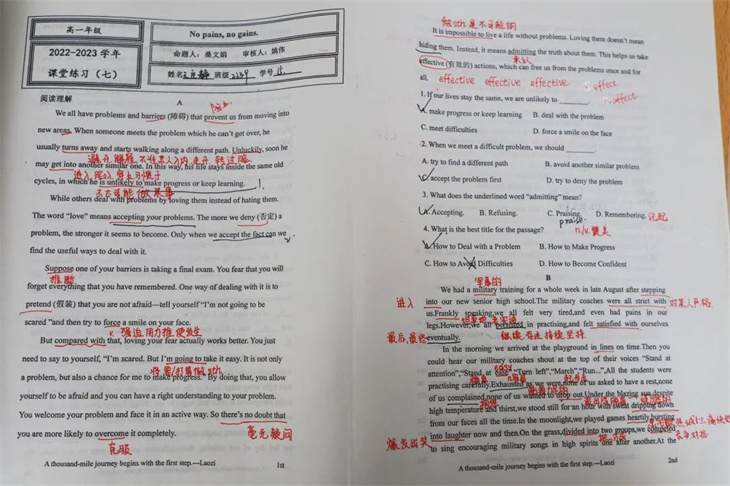 高一年级
2022-2023学年
课堂练习（七）
No pains, no gains.
命题人：桑文娟 审核人：姚伟
姓名 班级 2239 学号
阅读理解
A
We all have problems and barriers (障碍) that prevent us from moving into
new areas. When someone meets the problem which he can't get over, he
usually turns away and starts walking along a different path. Unluckily, soon he
may get into another similar one. In this way, his life stays inside the same old
cycles, in which he is unlikely to make progress or keep learning.
While others deal with problems by loving them instead of hating them.
The word "love" means accepting your problems. The more we deny (否定) a
problem, the stronger it seems to become. Only when we accept the fact can we
find the useful ways to deal with it.
Suppose one of your barriers is taking a final exam. You fear that you will
推断
forget everything that you have remembered. One way of dealing with it is to
pretend (假装) that you are not afraid—tell yourself "I'm not going to be
scared "and then try to force a smile on your face.
But compared with that, loving your fear actually works better. You just
need to say to yourself, "I'm scared. But I'm going to take it easy. It is not only
a problem, but also a chance for me to make progress." By doing that, you allow
yourself to be afraid and you can have a right understanding to your problem.
You welcome your problem and face it in an active way. So there's no doubt that
you are more likely to overcome it completely.
毫无疑问
克服
A thousand-mile journey begins with the first step.---Laozi
1st
做sth是不可能的
It is impossible to live a life without problems. Loving them doesn't mean
hiding them. Instead, it means admitting the truth about them. This helps us take
承认
effective (有效的) actions, which can free us from the problems once and for
all. effective effective effective effect
affect
1. If our lives stay the same, we are unlikely to
A. make progress or keep learning B. deal with the problem
C. meet difficulties D. force a smile on the face
2. When we meet a difficult problem, we should
A. try to find a different path B. avoid another similar problem
C. accept the problem first D. try to deny the problem
3. What does the underlined word "admitting" mean?
A. Accepting. B. Refusing. C. Praising. D. Remembering. 记起
praise n/v. 赞美
4. What is the best title for the passage?
A. How to Deal with a Problem B. How to Make Progress
C. How to Avoid Difficulties D. How to Become Confident
军事的 B
We had a military training for a whole week in late August after stepping
进入 into our new senior high school.The military coaches were all strict with 对某人严格
us.Frankly speaking,we all felt very tired,and even had pains in our
legs.However,we all persisted in practising,and felt satisfied with ourselves
最后,最终 eventually. 继续存在 持续 坚持
In the morning we arrived at the playground in lines on time.Then you
could hear our military coaches shout at the top of their voices "Stand at
attention","Stand at ease","Turn left","March","Run...",All the students were
practising carefully.Exhausted as we were,none of us asked to have a rest,none
of us complained,none of us wanted to drop out.Under the blazing sun despite
high temperature and thirst,we stood still for an hour with sweat dripping down
from our faces all the time.In the moonlight,we played games heartily,bursting
爆发出笑 into laughter now and then.On the grass,divided into two groups,we competed
to sing encouraging military songs in high spirits one after another.At the
A thousand-mile journey begins with the first step.---Laozi
2nd